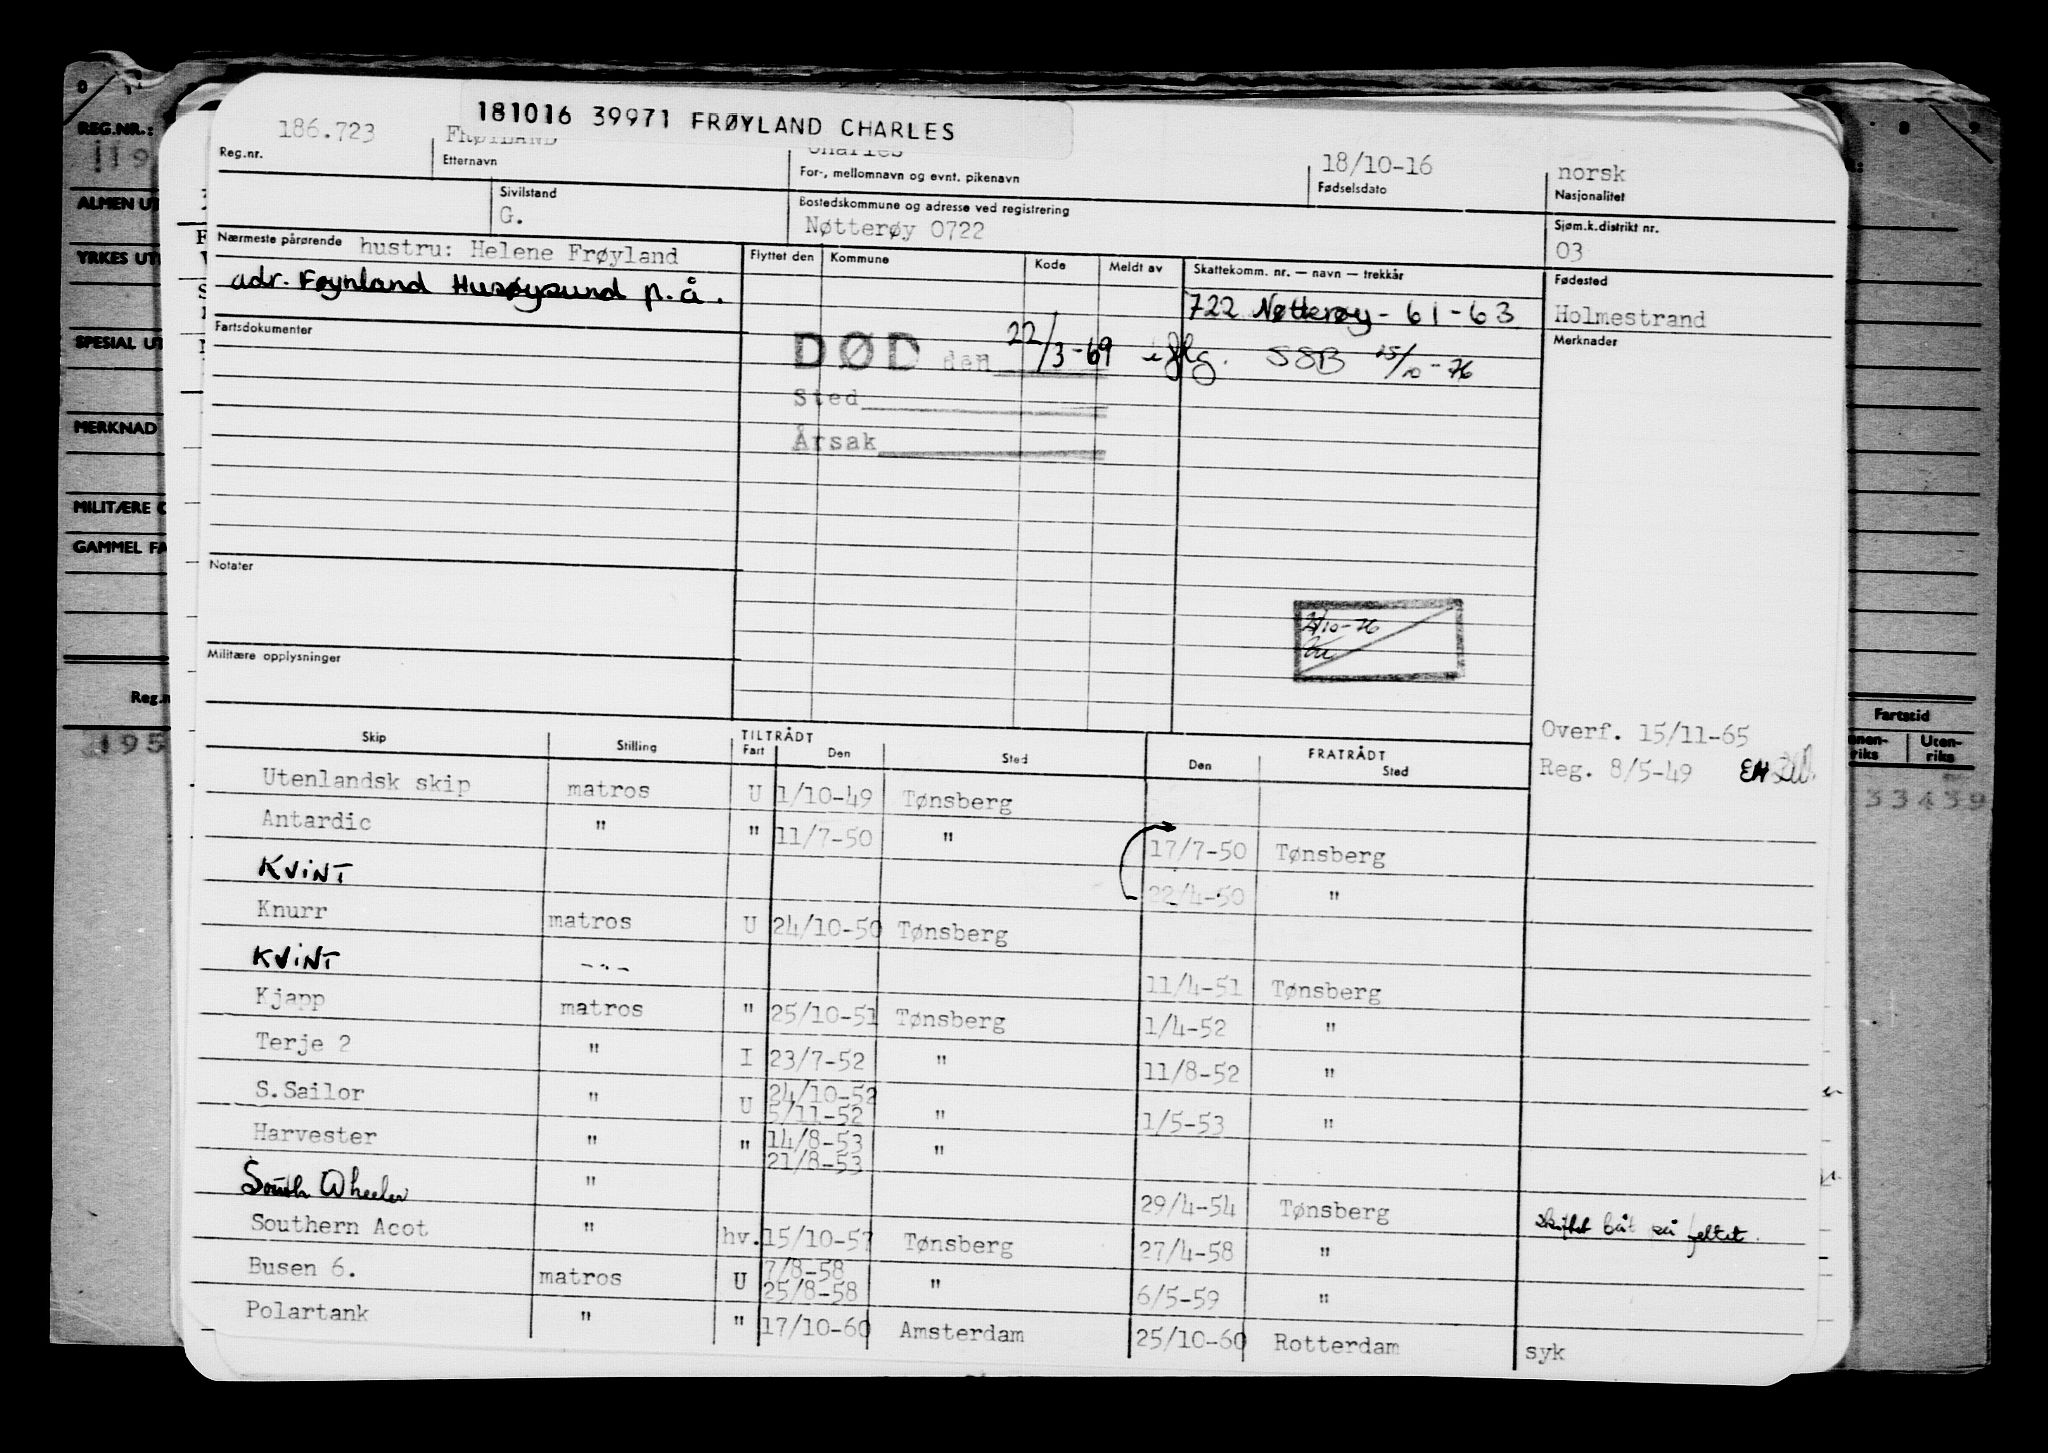 181016 39971 FRØYLAND CHARLES
186.723 FRØYLAND Charles 18/10-16 norsk
Reg.nr. Etternavn For-, mellomnavn og evnt. pikenavn Fødselsdato Nasjonalitet
Sivilstand Bostedskommune og adresse ved registrering Sjøm.k.distrikt nr.
G. Nøtterøy 0722 03
Nærmeste pårørende hustru: Helene Frøyland Flyttet den Kommune Kode Meldt av Skattekomm. nr. — navn — trekkår Fødested
adr. Føynland Husøysund p.å. 722 Nøtterøy - 61 - 63 Holmestrand
Fartsdokumenter Merknader
DØD den 22/3-69 iflg. SSB 25/10-76
Sted
Årsak
Notater
21/10-76
Militære opplysninger
Overf. 15/11-65
Reg. 8/5-49 EH
Skip Stilling TILTRÅDT Fart Den Sted FRATRÅDT Den Sted
Utenlandsk skip matros U 1/10-49 Tønsberg
Antardic " " 11/7-50 " 17/7-50 Tønsberg
KVINT 22/4-50 "
Knurr matros U 24/10-50 Tønsberg
KVINT -"- 11/4-51 Tønsberg
Kjapp matros " 25/10-51 Tønsberg 1/4-52 "
Terje 2 " I 23/7-52 " 11/8-52 "
S.Sailor " U 24/10-52 5/11-52 " 1/5-53 "
Harvester " " 14/8-53 21/8-53 "
South Wheeler " 29/4-54 Tønsberg skiftet båt på feltet.
Southern Acot " hv. 15/10-57 Tønsberg 27/4-58 "
Busen 6. matros U 7/8-58 25/8-58 " 6/5-59 "
Polartank " " 17/10-60 Amsterdam 25/10-60 Rotterdam syk
REG.NR.:
ALMEN UT
YRKES UT
SPESIAL UT
MERKNAD
MILITÆRE
GAMMEL FA
Reg.n
195
Fartstid
Uten-
riks
33439